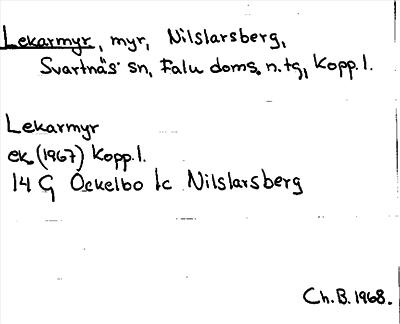 Lekarmyr, myr, Nilslarsberg,
Svartnäs sn, Falu doms. n. tg, Kopp. l.
Lekarmyr
ek. (1967) Kopp. l.
14 G Ockelbo 1c Nilslarsberg
Ch. B. 1968.